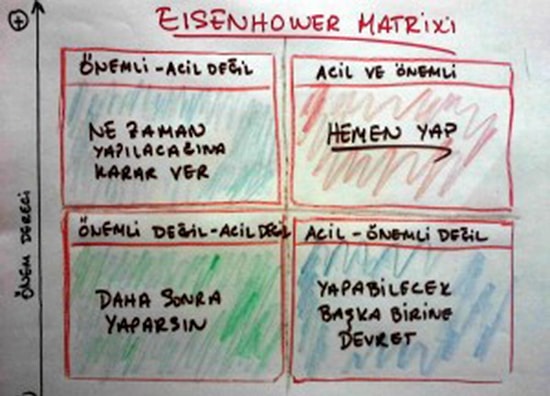 EISENHOWER MATRIXİ
ÖNEMLİ - ACİL DEĞİL
NE ZAMAN
YAPILACAĞINA
KARAR VER
ACİL VE ÖNEMLİ
HEMEN YAP
ÖNEMLİ DEĞİL - ACİL DEĞİL
DAHA SONRA
YAPARSIN
ACİL - ÖNEMLİ DEĞİL
YAPABİLECEK
BAŞKA BİRİNE
DEVRET
ÖNEM DERECİ
+